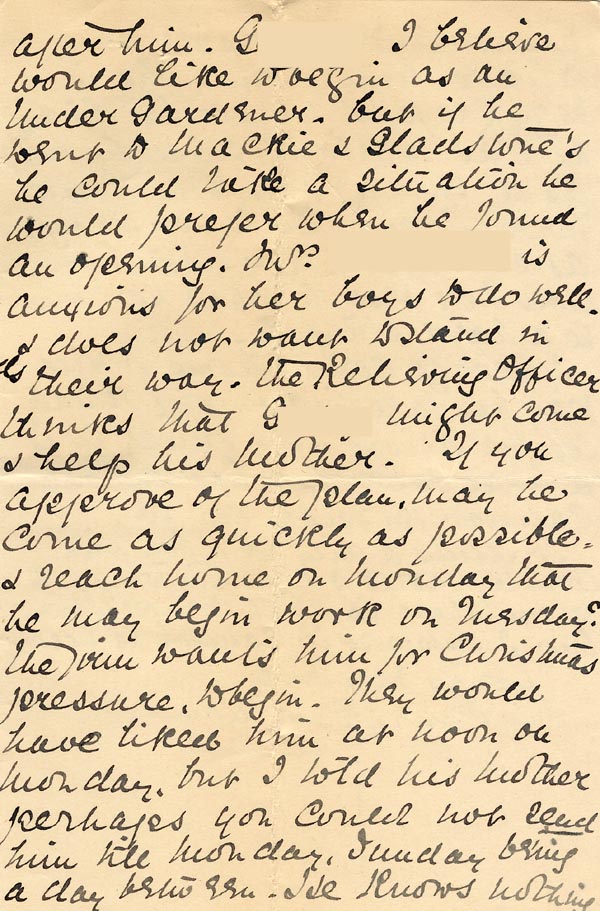 after him. G I believe
would like to begin as an
Under Gardener. but if he
went to Mackie & Gladstone's
he could take a situation he
would prefer when he found
an opening. Mrs. is
anxious for her boys to do well.
& does not want to stand in
their way. The Relieving Officer
thinks that G might come
& help his mother. If you
approve of the plan, may he
come as quickly as possible.
& reach home on Monday that
he may begin work on Tuesday?
The firm wants him for Christmas
pressure, to begin. They would
have liked him at noon on
Monday, but I told his mother
perhaps you could not send
him till Monday, Sunday being
a day between. He knows nothing